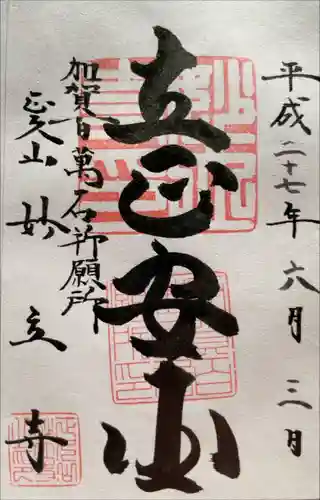 平成二十七年六月三日
立正安国
加賀百萬石祈願所
正久山 妙立寺